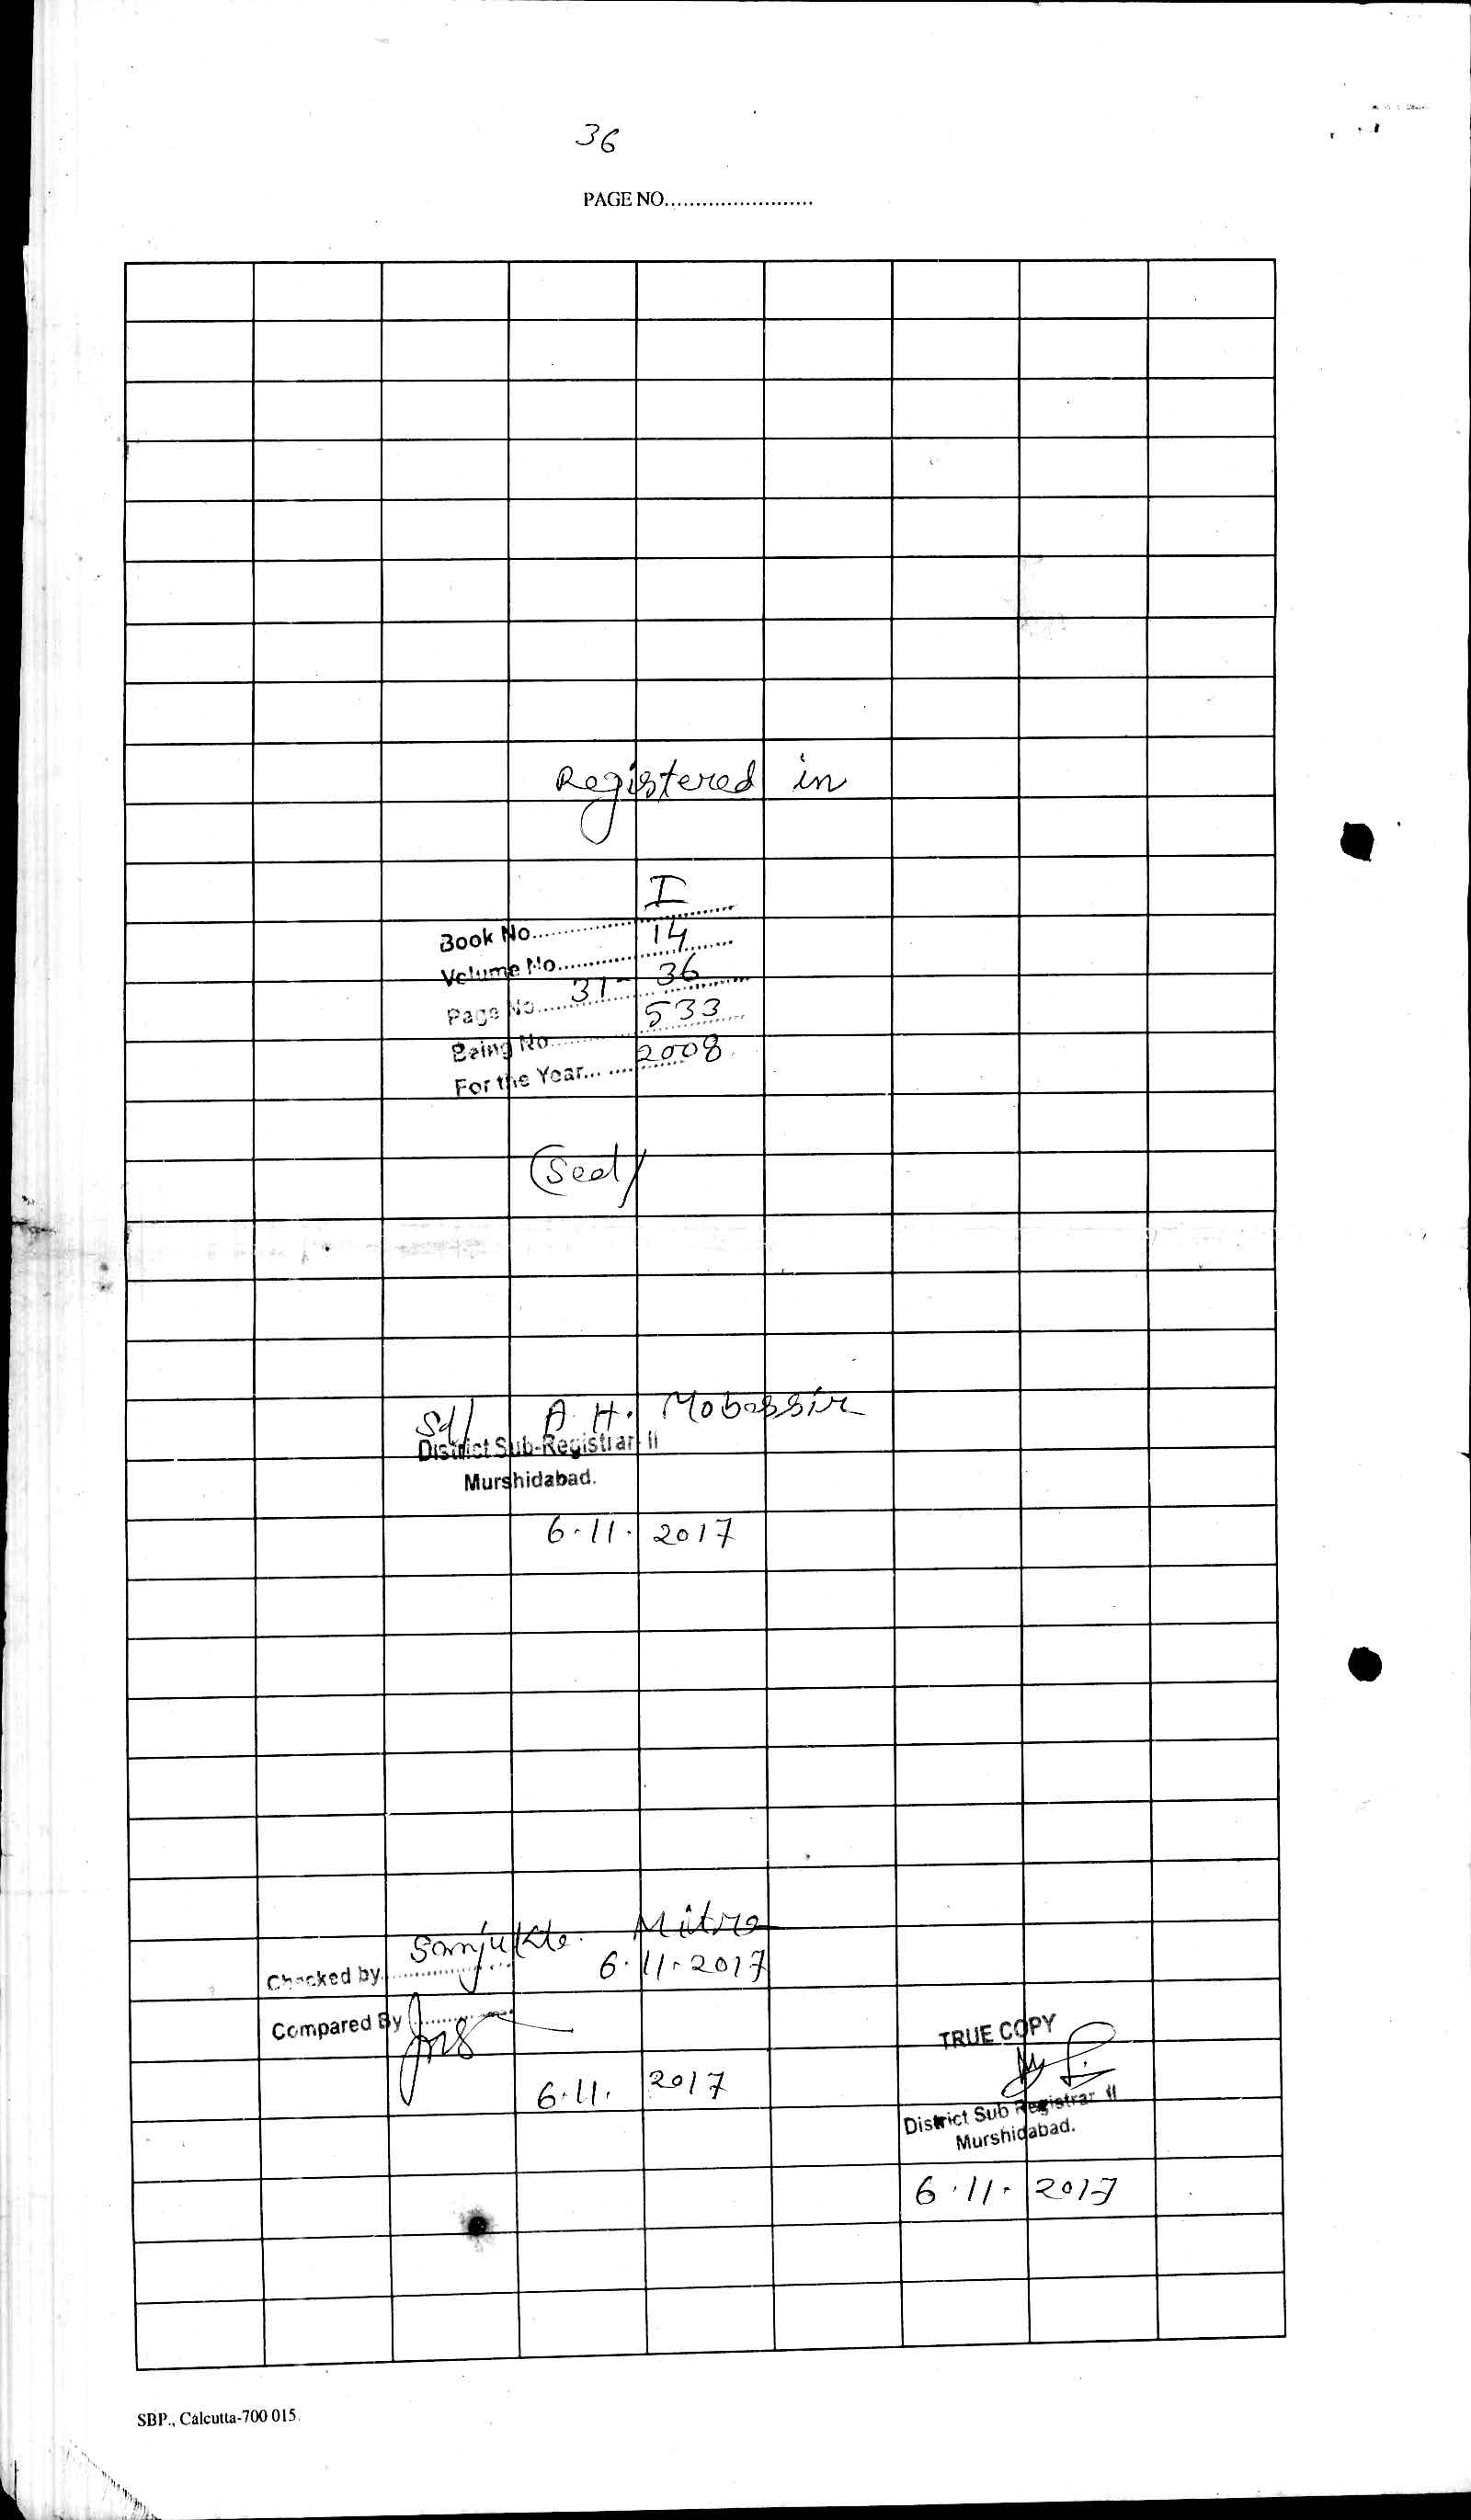 36
PAGE NO........................
Registered in
Book No.................. I
Volume No.................. 14
Page No.................. 31 - 36
Being No.................. 533
For the Year.................. 2008
(Seal)
Sd/ A. H. Mobassir
District Sub-Registrar-II
Murshidabad.
6.11.2017
Checked by.................. Sanjukta Mitra
6.11.2017
Compared By..................
6.11.2017
TRUE COPY
District Sub Registrar II
Murshidabad.
6.11.2017
SBP., Calcutta-700 015.